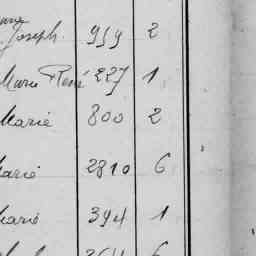 Joseph. 959 2
Marie René 227 1
Marie 800 2
Marie 2810 6
Marie 394 1